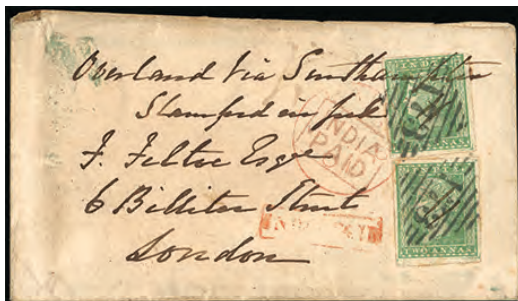 Overland via Southampton
Stamped in full
F. Feltoe Esqr
6 Billiter Street
London
INDIA
PAID
173
TWO ANNAS